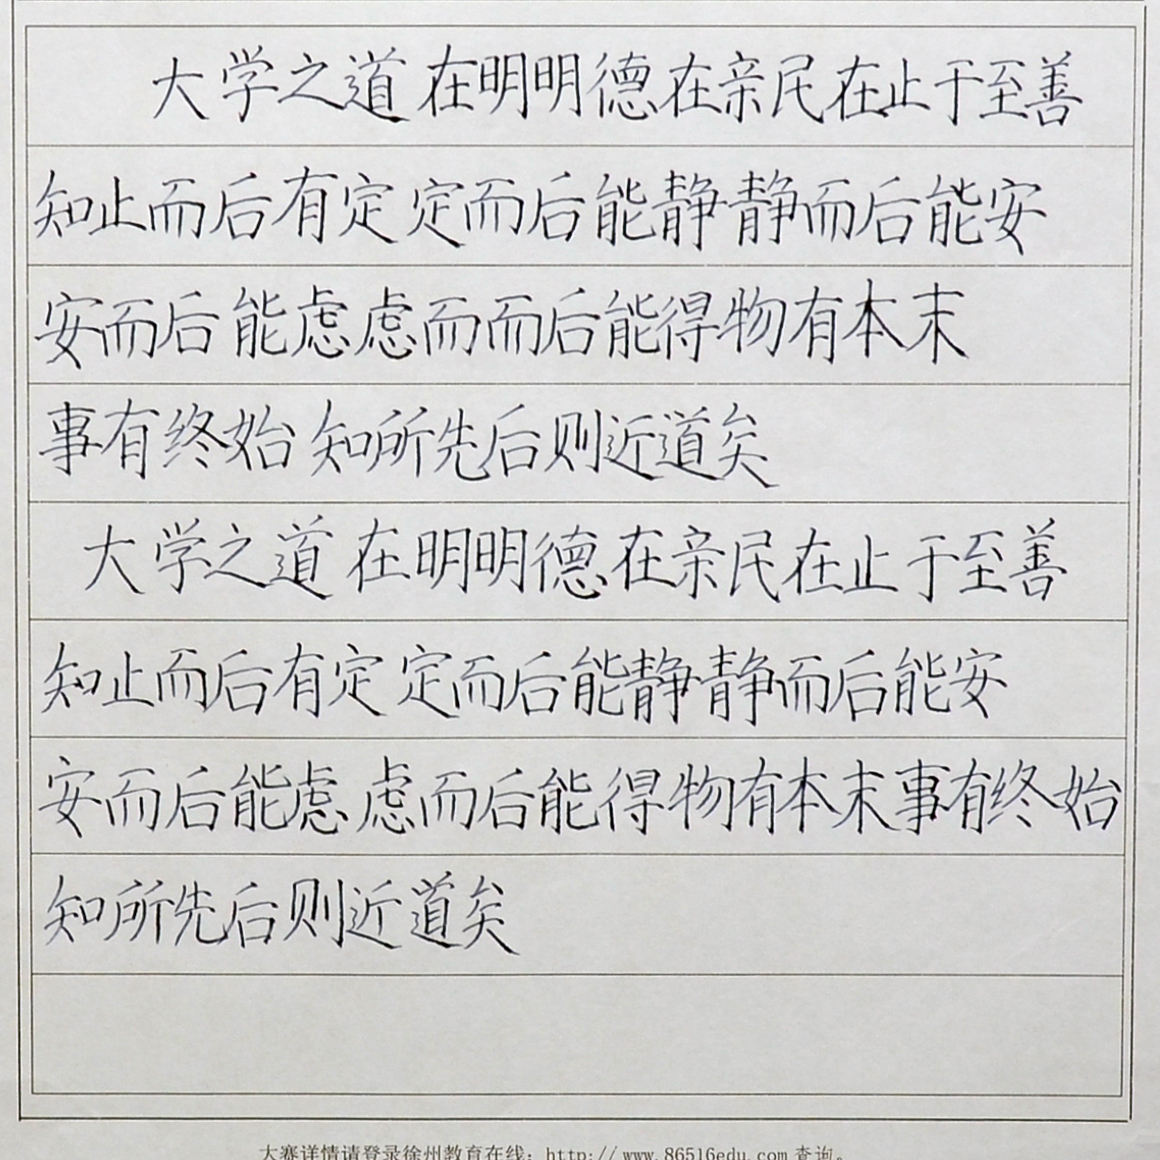 大学之道 在明明德在亲民在止于至善
知止而后有定 定而后能静静而后能安
安而后能虑虑而而后能得物有本末
事有终始 知所先后则近道矣
大学之道 在明明德在亲民在止于至善
知止而后有定 定而后能静静而后能安
安而后能虑 虑而后能得物有本末事有终始
知所先后则近道矣
大赛详情请登录徐州教育在线：http://www.86516edu.com 查询。